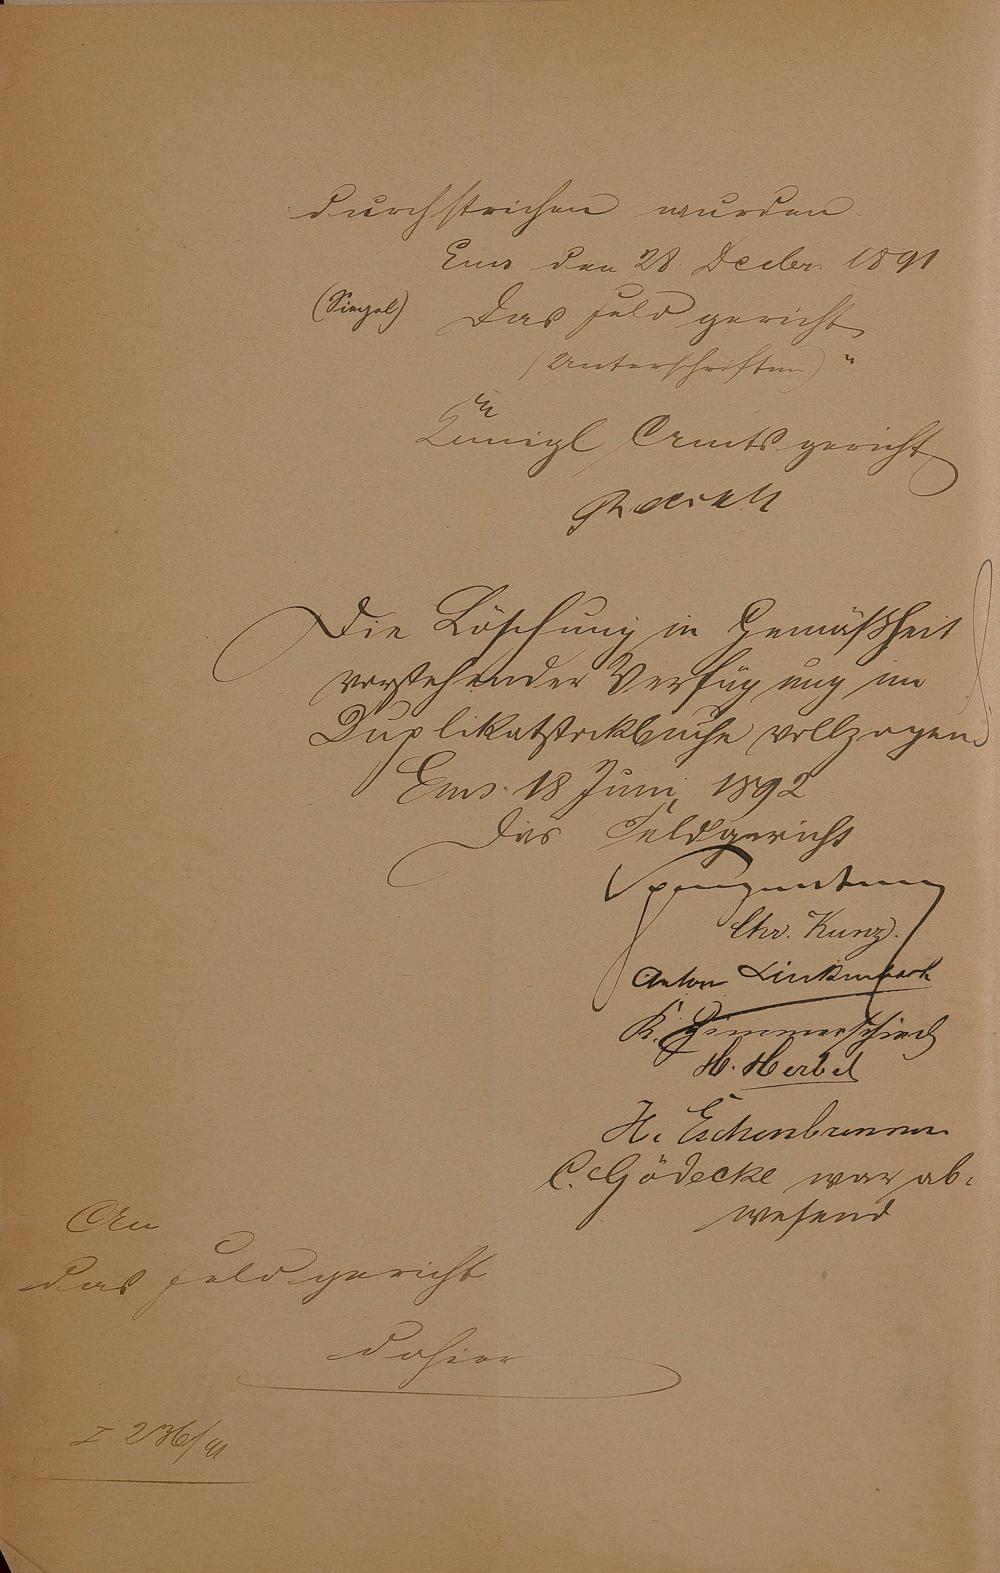 durchstrichen wurden
Ems den 28. Decbr. 1891
(Siegel) Das Feldgericht
(Unterschriften) "
Königl Amtsgericht
Die Löschung in Gemäßheit
vorstehender Verfügung im
Duplikatstockbuche vollzogen
Ems 18 Juni 1892
Das Feldgericht
Chr. Kunz.
Anton Linkenbach
K. Zimmerschied
H. Herbel
H. Eschenbrenner
C. Gödecke war ab-
wesend
An
das Feldgericht
dahier
I 236/91